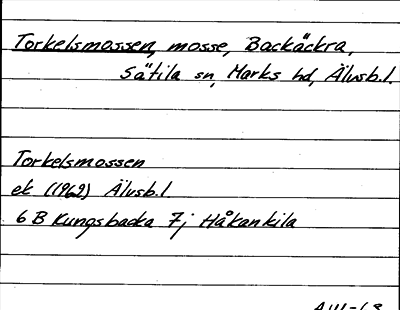 Torkelsmossen, mosse, Backäckra,
Sätila sn, Marks hd, Älvsb.l.
Torkelsmossen
ek (1969) Älvsb.l.
6 B Kungsbacka 7j Håkankila